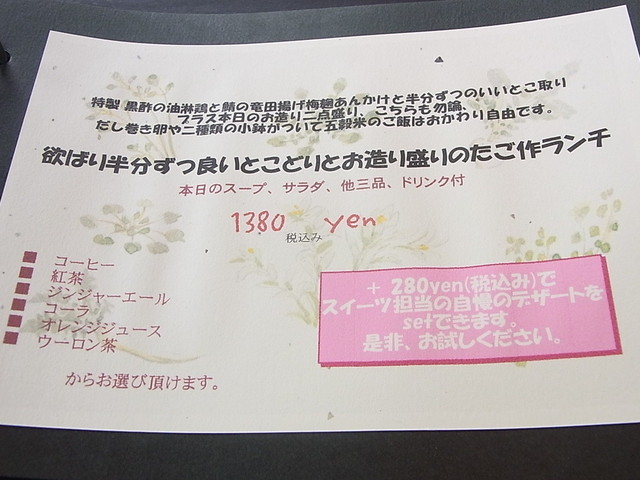 特製 黒酢の油淋鶏と鯖の竜田揚げ梅麹あんかけと半分ずつのいいとこ取り
プラス本日のお造り二点盛り、こちらも勿論、
だし巻き卵や二種類の小鉢がついて五穀米のご飯はおかわり自由です。
欲ばり半分ずつ良いとこどりとお造り盛りのたご作ランチ
本日のスープ、サラダ、他三品、ドリンク付
1380 yen
税込み
コーヒー
紅茶
ジンジャーエール
コーラ
オレンジジュース
ウーロン茶
からお選び頂けます。
+ 280yen(税込み)で
スイーツ担当の自慢のデザートを
setできます。
是非、お試しください。